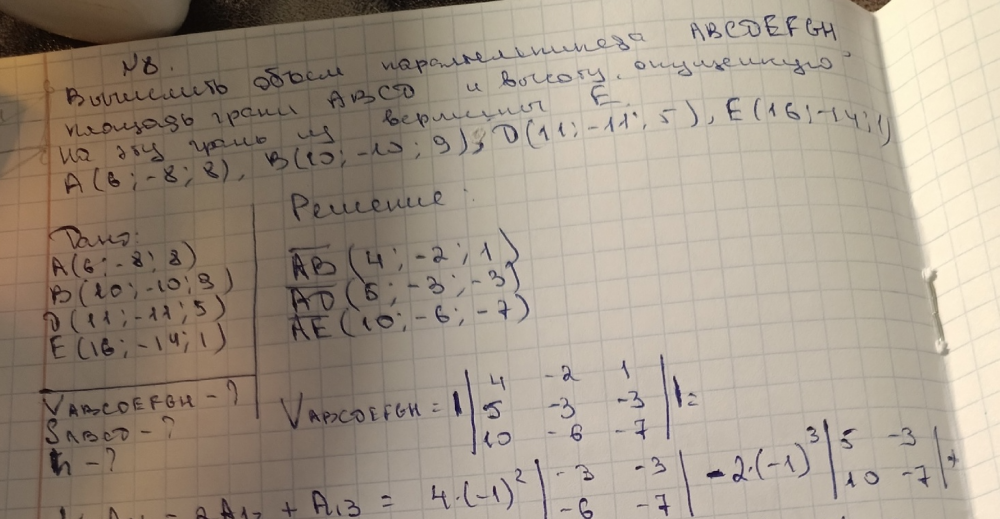 №8.
Вычислить объем параллелепипеда ABCDEFGH,
площадь грани ABCD и высоту, опущенную
на эту грань из вершины E.
A(6; -8; 8), B(10; -10; 9), D(11; -11; 5), E(16; -14; 1)
Дано:
A(6; -8; 8)
B(10; -10; 9)
D(11; -11; 5)
E(16; -14; 1)
VABCDEFGH - ?
SABCD - ?
h - ?
Решение:
AB (4; -2; 1)
AD (5; -3; -3)
AE (10; -6; -7)
VABCDEFGH = | | 4 -2 1 | | =
5 -3 -3
10 -6 -7
- 2A12 + A13 = 4·(-1)² | -3 -3 | - 2·(-1)³ | 5 -3 | +
-6 -7 10 -7